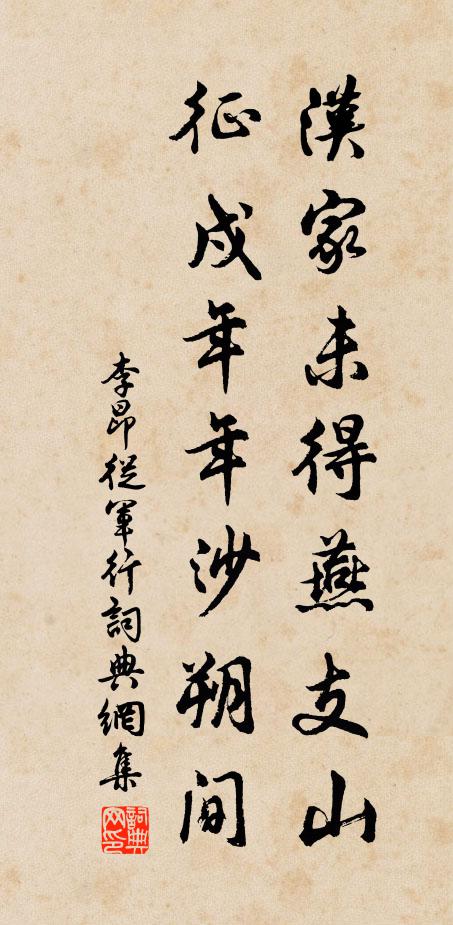 漢家未得燕支山
征戍年年沙朔间
李昂從軍行詞典網集
詞典网印